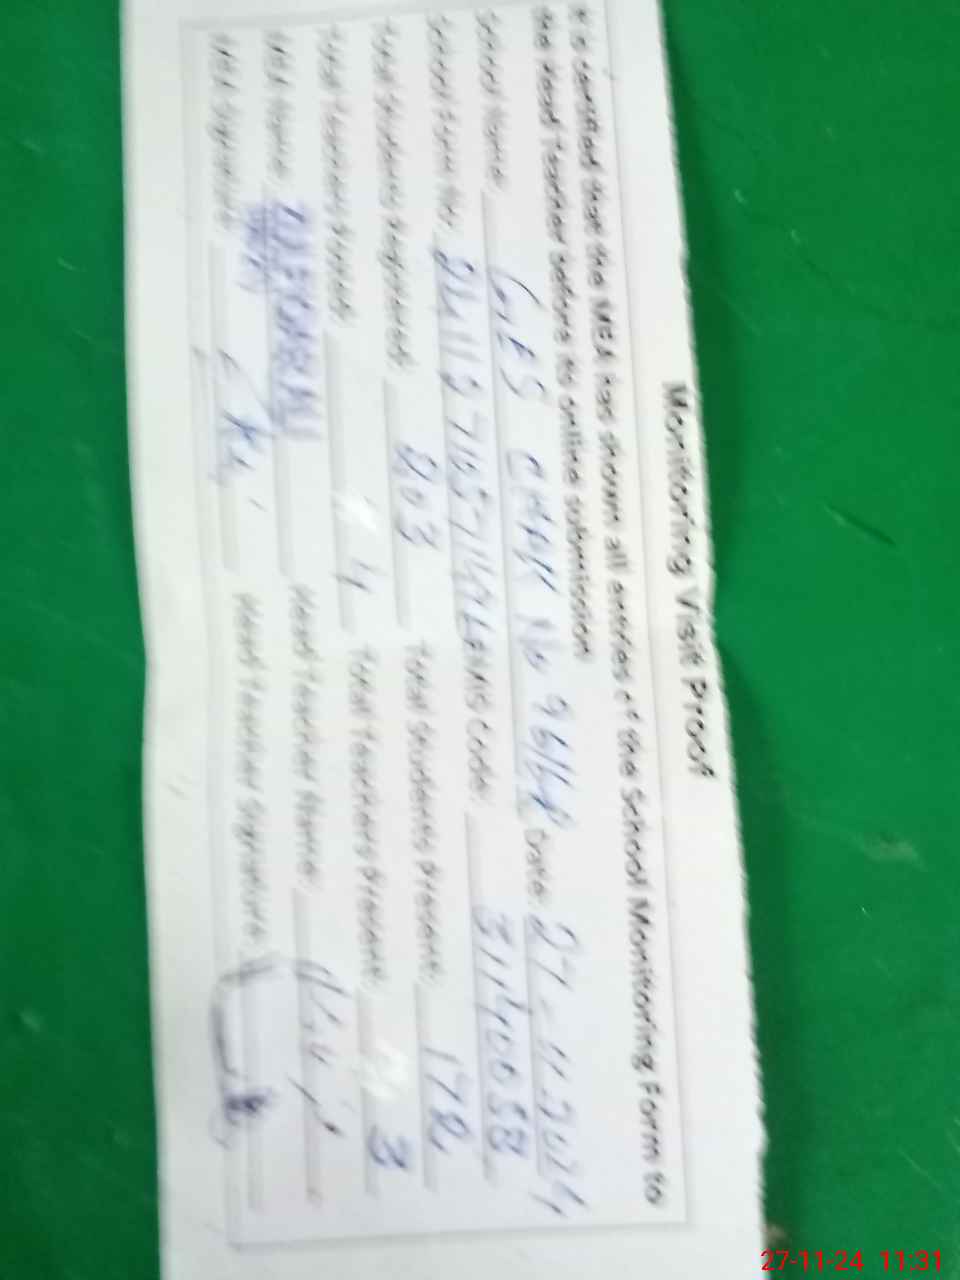 Monitoring Visit Proof
It is certified that the MEA has shown all entries of the School Monitoring Form to
the Head Teacher before its online submission
School Name: GES CHAK No 96/6R Date: 27-11-2024
School Form No: EMIS Code: 31140058
Total Students Registered: 203 Total Students Present: 172
Total Teachers Posted: 4 Total Teachers Present: 3
MEA Name: Head Teacher Name:
MEA Signature: Head Teacher Signature:
27-11-24 11:31